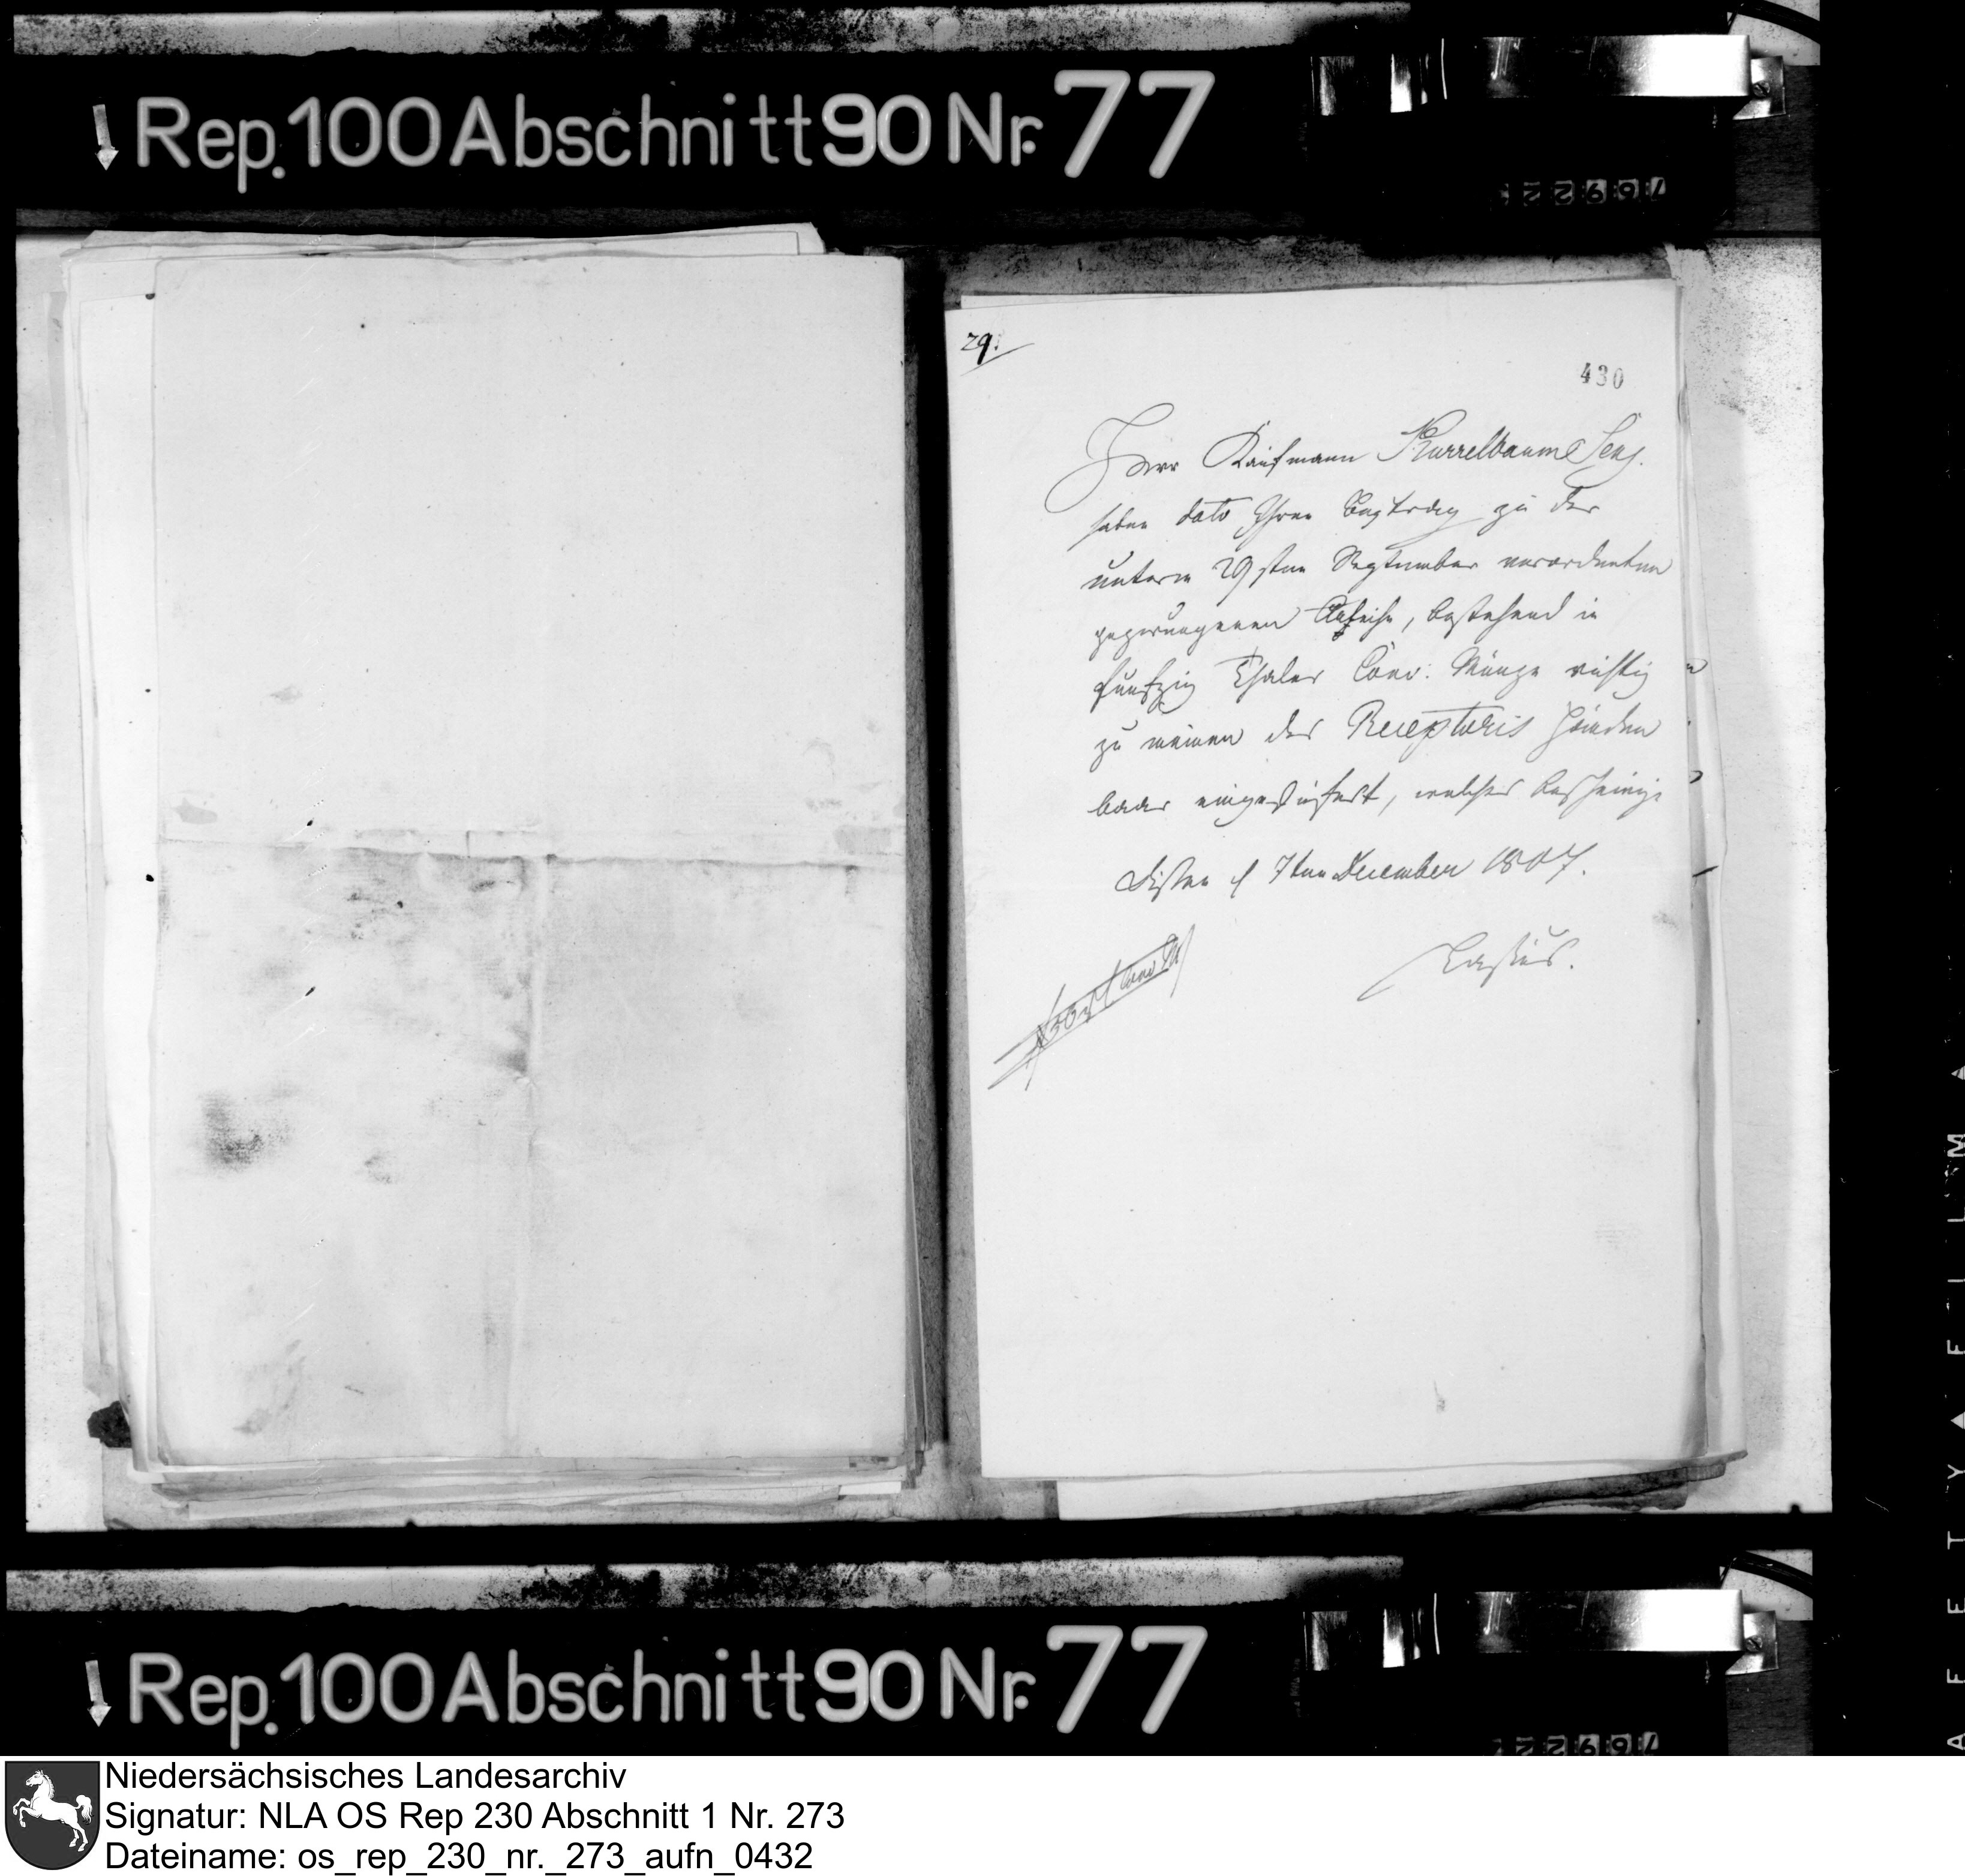 Rep. 100 Abschnitt 90 Nr. 77
29.
430
Herr Kaufmann Kurrelbaum Sen.
haben dato Ihren Beytrag zu der
unterm 29sten September verordneten
gezwungenen Anleihe, bestehend in
funfzig Thaler Conv: Münze richtig
zu meinen des Receptoris Händen
baar eingeliefert, welches bescheinige
Dissen d 7ten December 1807.
Rep. 100 Abschnitt 90 Nr. 77
Niedersächsisches Landesarchiv
Signatur: NLA OS Rep 230 Abschnitt 1 Nr. 273
Dateiname: os_rep_230_nr._273_aufn_0432